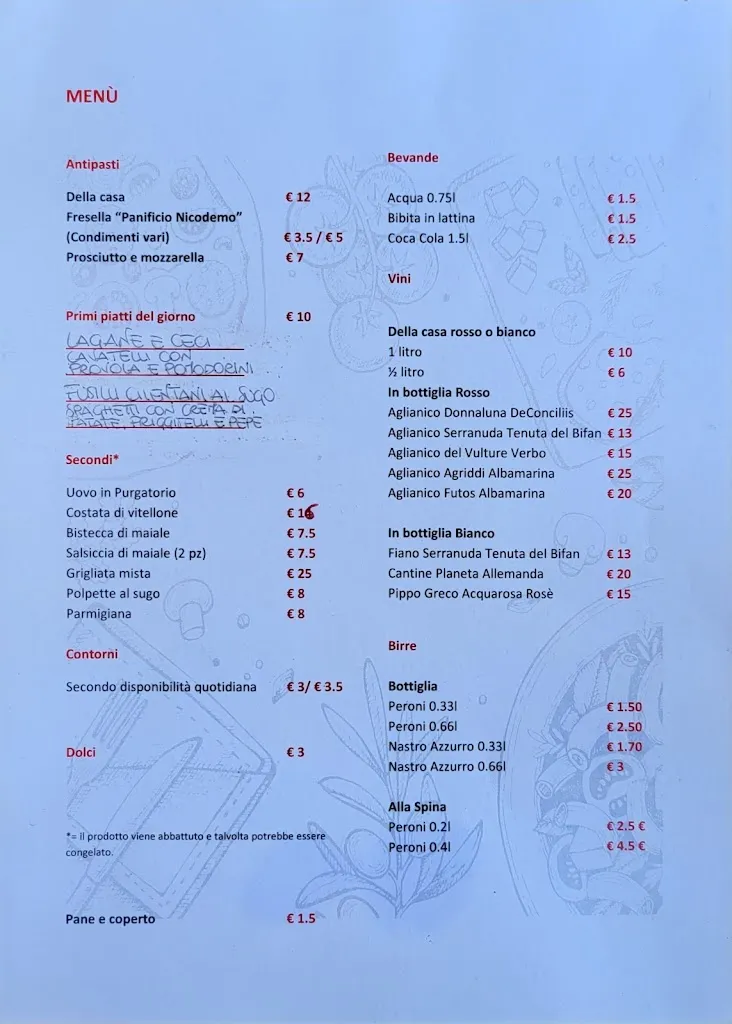 MENÙ
Antipasti
Della casa € 12
Fresella “Panificio Nicodemo”
(Condimenti vari) € 3.5 / € 5
Prosciutto e mozzarella € 7
Primi piatti del giorno € 10
LAGANE E CECI
CAVATELLI CON
PROVOLA E POMODORINI
FUSILLI CILENTANI AL SUGO
SPAGHETTI CON CREMA DI
PATATE, FRIGGITELLI E PEPE
Secondi*
Uovo in Purgatorio € 6
Costata di vitellone € 16
Bistecca di maiale € 7.5
Salsiccia di maiale (2 pz) € 7.5
Grigliata mista € 25
Polpette al sugo € 8
Parmigiana € 8
Contorni
Secondo disponibilità quotidiana € 3/ € 3.5
Dolci € 3
*= Il prodotto viene abbattuto e talvolta potrebbe essere
congelato.
Pane e coperto € 1.5
Bevande
Acqua 0.75l € 1.5
Bibita in lattina € 1.5
Coca Cola 1.5l € 2.5
Vini
Della casa rosso o bianco
1 litro € 10
½ litro € 6
In bottiglia Rosso
Aglianico Donnaluna DeConciliis € 25
Aglianico Serranuda Tenuta del Bifan € 13
Aglianico del Vulture Verbo € 15
Aglianico Agriddi Albamarina € 25
Aglianico Futos Albamarina € 20
In bottiglia Bianco
Fiano Serranuda Tenuta del Bifan € 13
Cantine Planeta Allemanda € 20
Pippo Greco Acquarosa Rosè € 15
Birre
Bottiglia
Peroni 0.33l € 1.50
Peroni 0.66l € 2.50
Nastro Azzurro 0.33l € 1.70
Nastro Azzurro 0.66l € 3
Alla Spina
Peroni 0.2l € 2.5 €
Peroni 0.4l € 4.5 €